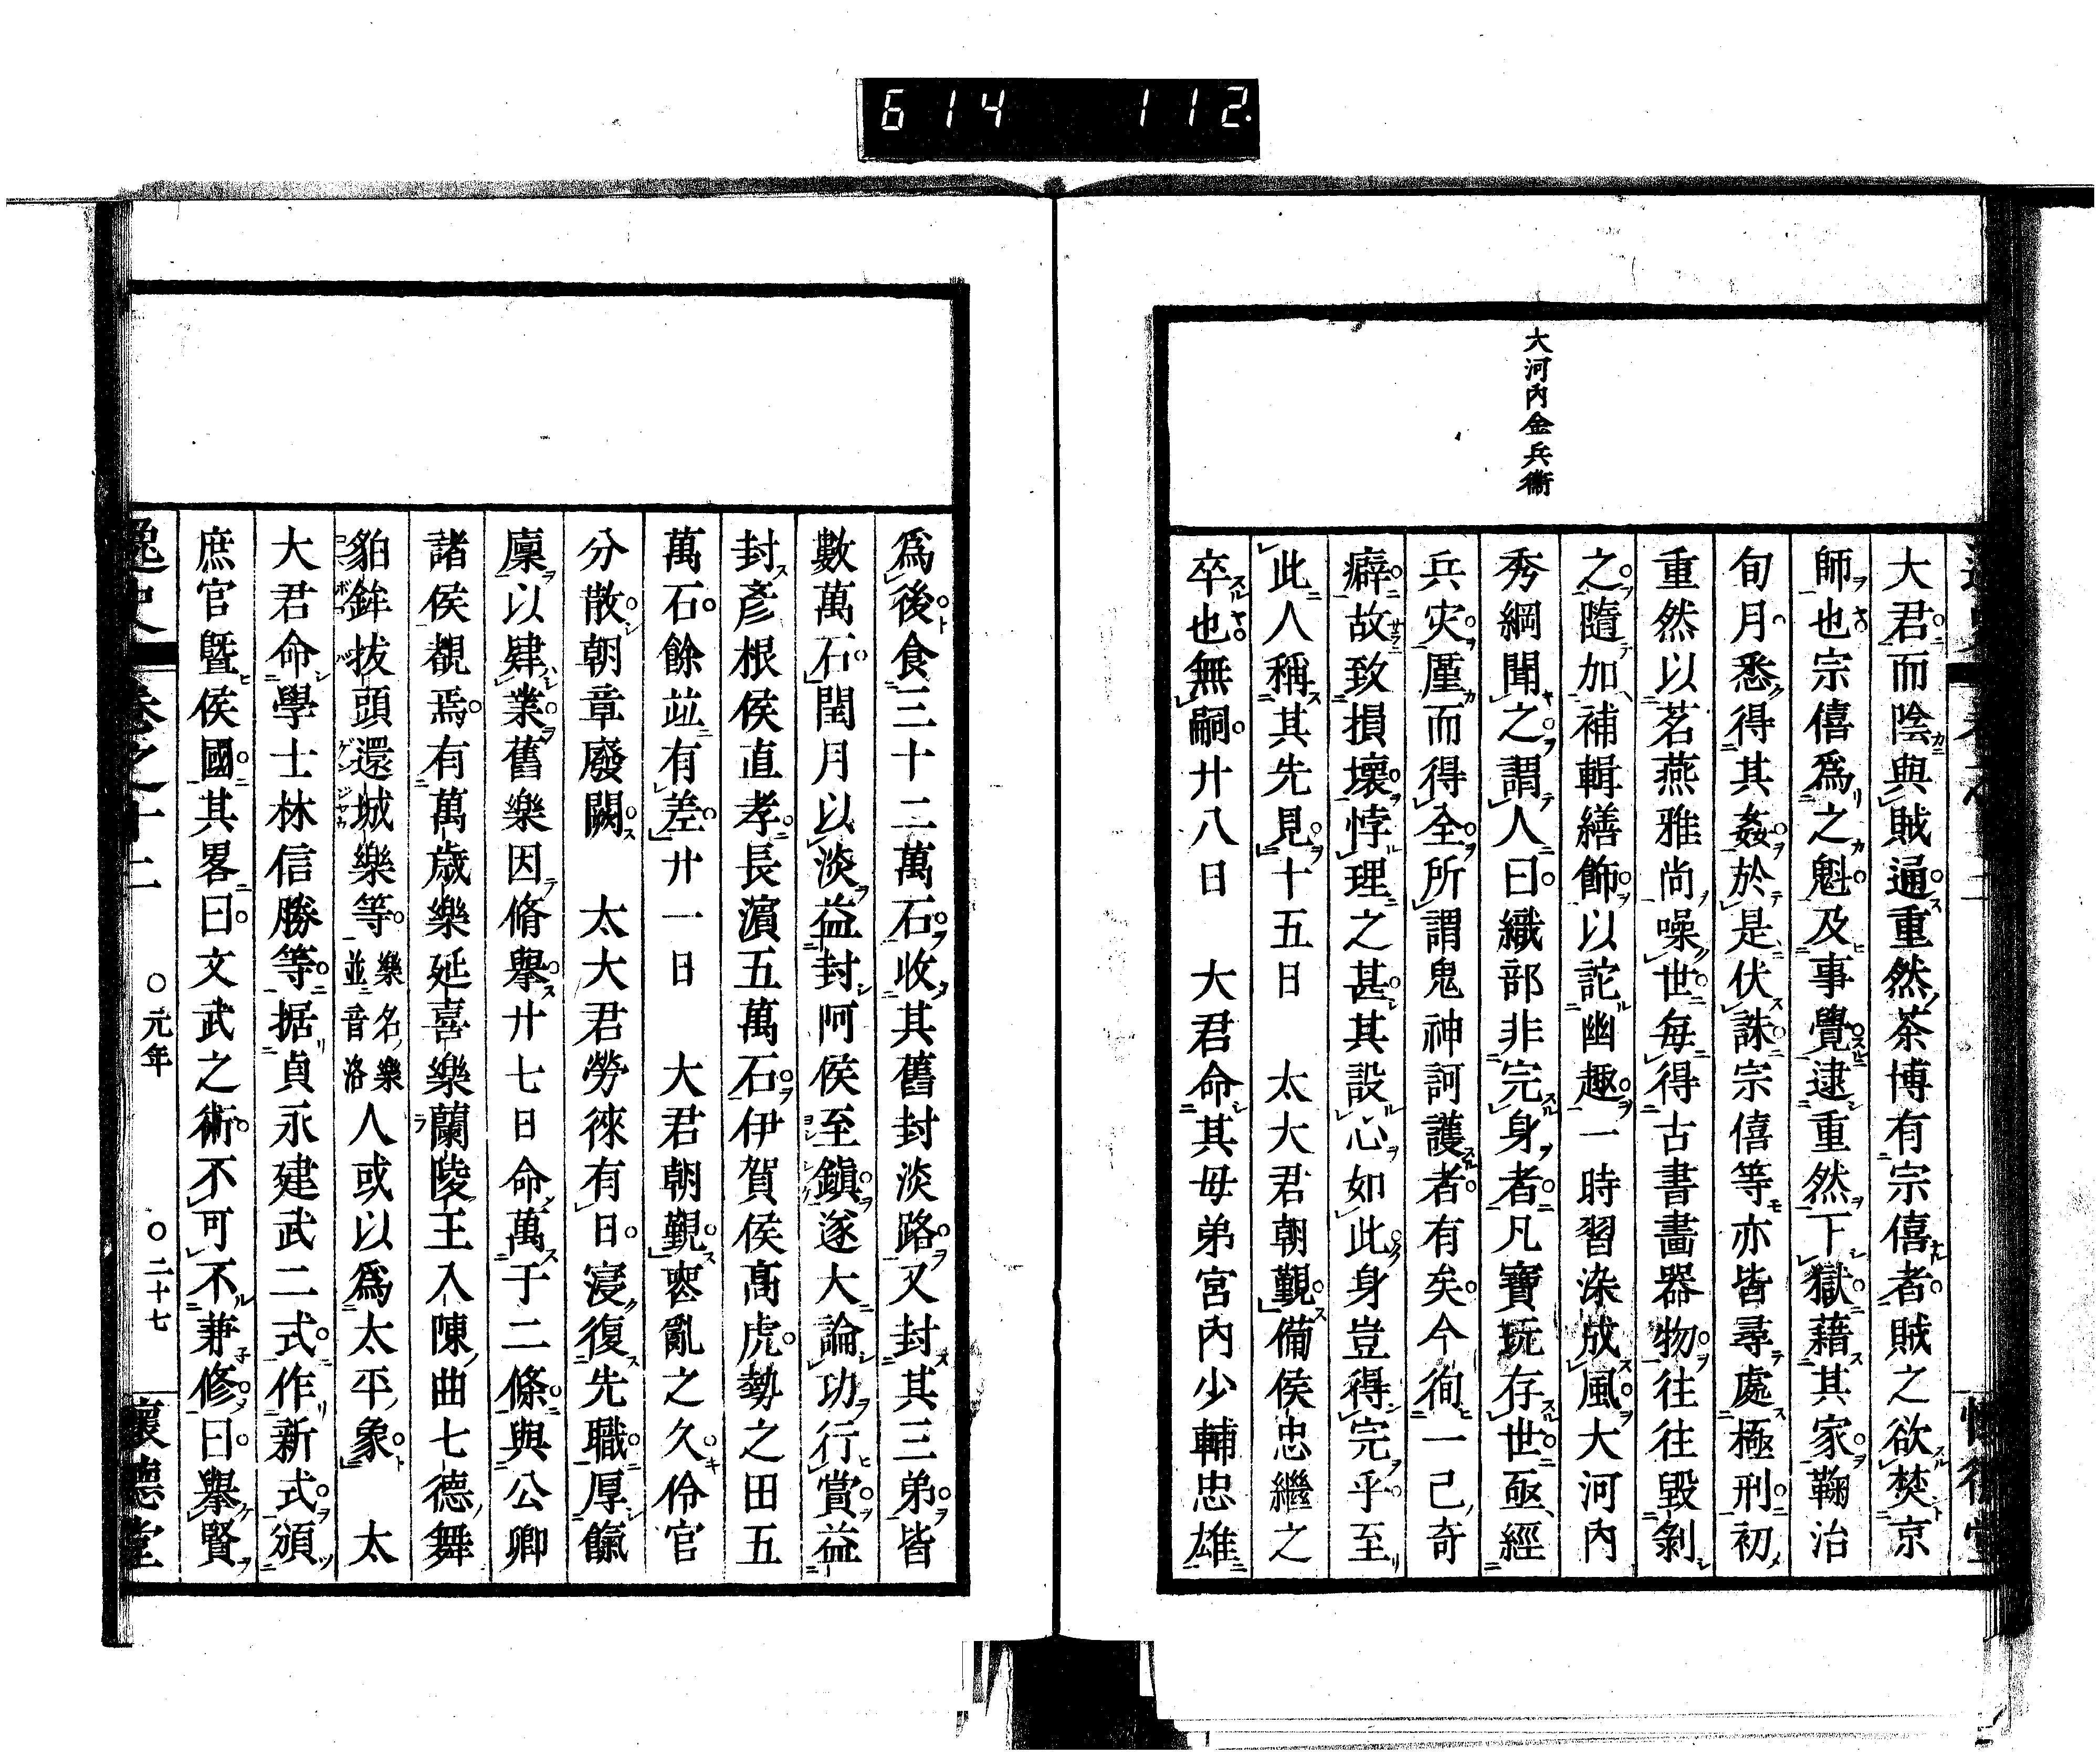 614 112
大河内金兵衞
大君而陰與賊通重然茶博有宗僖者賊之欲焚京
師也宗僖爲之魁及事覺逮重然下獄藉其家鞠治
旬月悉得其姦於是伏誅宗僖等亦皆尋處極刑初
重然以茗燕雅尚噪世每得古書畫器物往往毀剝
之隨加補輯繕飾以詑幽趣一時習染成風大河内
秀綱聞之謂人曰織部非完身者凡寶玩存世亟經
兵灾厪而得全所謂鬼神訶護者有矣今徇一己奇
癖故致損壞悖理之甚其設心如此身豈得完乎至
此人稱其先見十五日　太大君朝覲備侯忠繼之
卒也無嗣廾八日　大君命其母弟宮内少輔忠雄
爲後食三十二萬石收其舊封淡路又封其三弟皆
數萬石閏月以淡益封阿侯至鎭遂大論功行賞益
封彥根侯直孝長濵五萬石伊賀侯高虎勢之田五
萬石餘竝有差廾一日　大君朝覲喪亂之久伶官
分散朝章廢闕　太大君勞徠有日寖復先職厚餼
廩以肄業舊樂因脩擧廾七日命萬于二條與公卿
諸侯覩焉有萬歳樂延喜樂蘭陵王入陳曲七德舞
狛鉾拔頭還城樂等樂名樂並音洛人或以爲太平象　太
大君命學士林信勝等据貞永建武二式作新式頒
庶官曁侯國其畧曰文武之術不可不兼修曰擧賢
逸史　卷之十二　〇元年　〇二十七　懷德堂